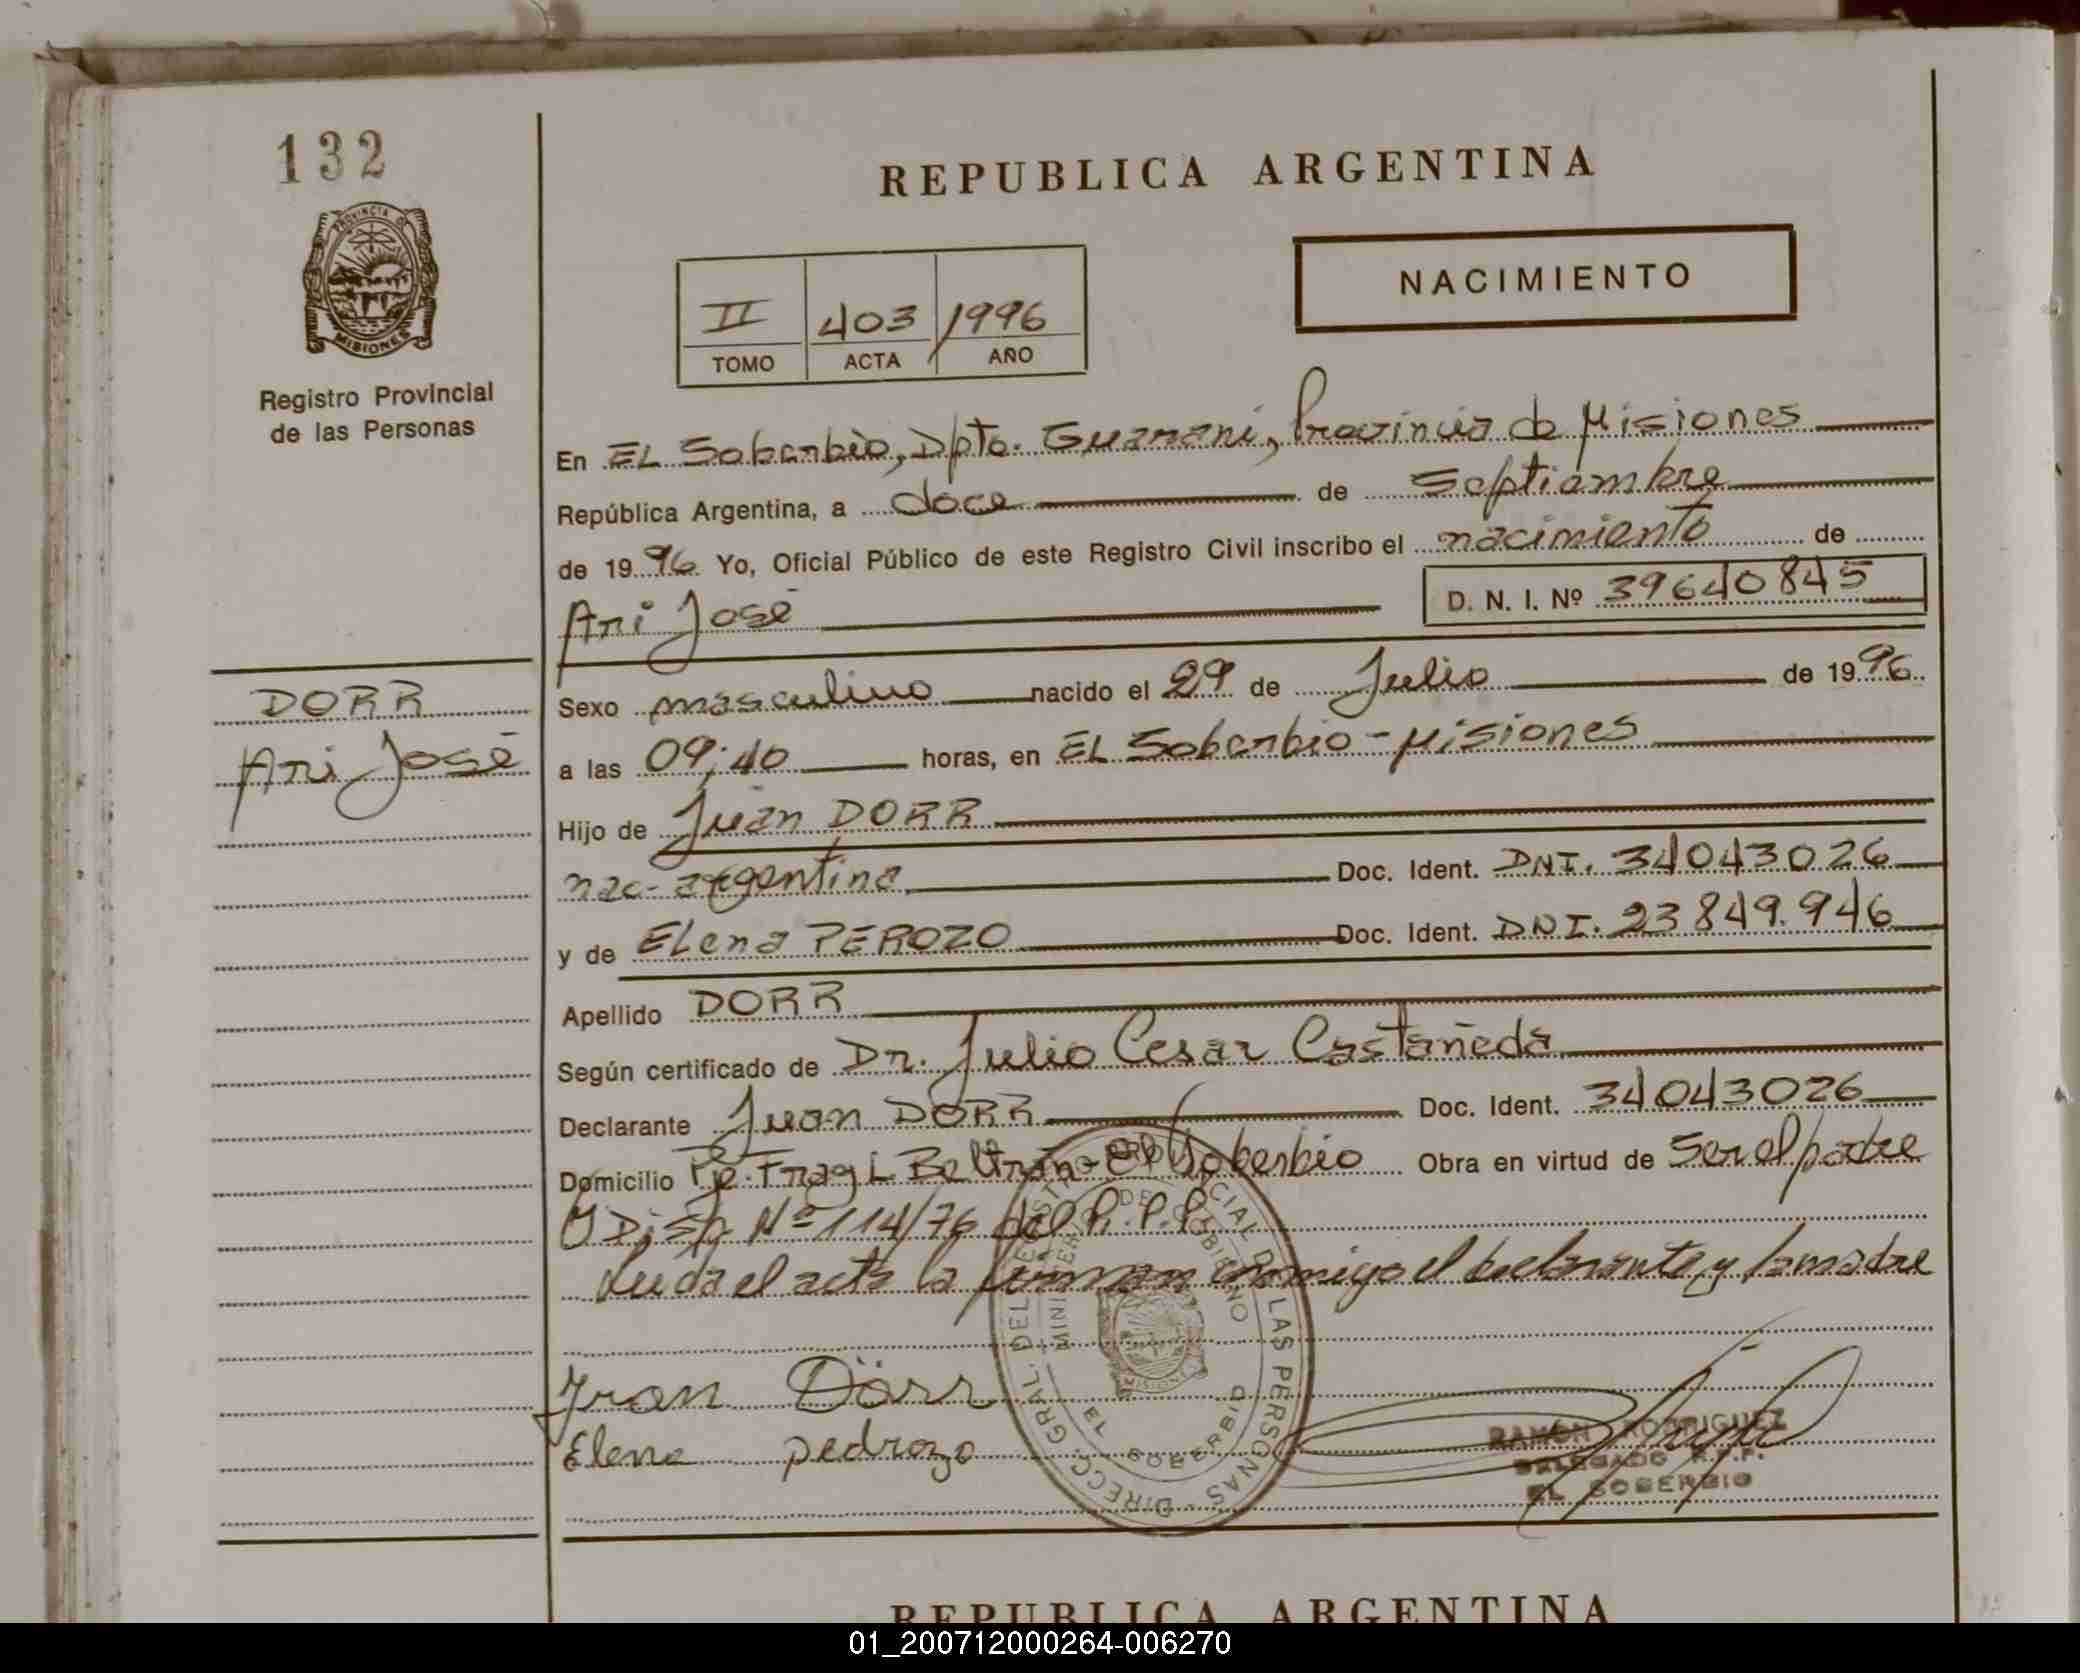 132
PROVINCIA DE
MISIONES
Registro Provincial
de las Personas
REPUBLICA ARGENTINA
NACIMIENTO
II 403 1996
TOMO ACTA AÑO
En EL Soberbio, Dpto. Guarani, Provincia de Misiones
República Argentina, a doce de Septiembre
de 1996 Yo, Oficial Público de este Registro Civil inscribo el nacimiento de
Ari José D. N. I. Nº 39640845
DORR
Ari José
Sexo masculino nacido el 29 de Julio de 1996
a las 09:40 horas, en EL Soberbio - Misiones
Hijo de Juan DORR
nac- argentina Doc. Ident. DNI. 34043026
y de Elena PEROZO Doc. Ident. DNI. 23849.946
Apellido DORR
Según certificado de Dr. Julio Cesar Castañeda
Declarante Juan DORR Doc. Ident. 34043026
Domicilio Pje. Fray L Beltrán - El Soberbio Obra en virtud de Ser el padre
y Disp Nº 114/76 del R.P.P.
Leida el acta la firman conmigo el declarante y la madre
Juan Dörr
Elena pedrozo
DIRECC. GRAL. DEL REGISTRO PROVINCIAL DE LAS PERSONAS
MINISTERIO DE GOBIERNO
MISIONES
EL SOBERBIO
RAMON RODRIGUEZ
DELEGADO R.P.P.
EL SOBERBIO
REPUBLICA ARGENTINA
01_200712000264-006270